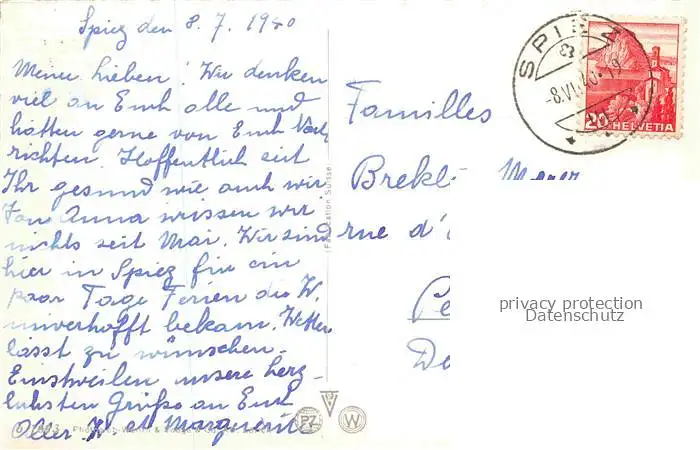 Spiez den 8. 7. 1940
Meine Lieben! Wir denken
viel an Euch alle und
hätten gerne von Euch Nach-
richten. Hoffentlich seit
Ihr gesund wie auch wir
Von Anna wissen wir
nichts seit Mai. Wir sind
hier in Spiez für ein
paar Tage Ferien die W.
unverhofft bekam. Wetter
lässt zu wünschen.
Einstweilen unsere herz-
lichsten Grüße an Euch
Aller W. et Marguerite
Familles
Meyer
rue d'
SPIEZ
20 HELVETIA
(Fabrication Suisse)
PZ
W
privacy protection
Datenschutz